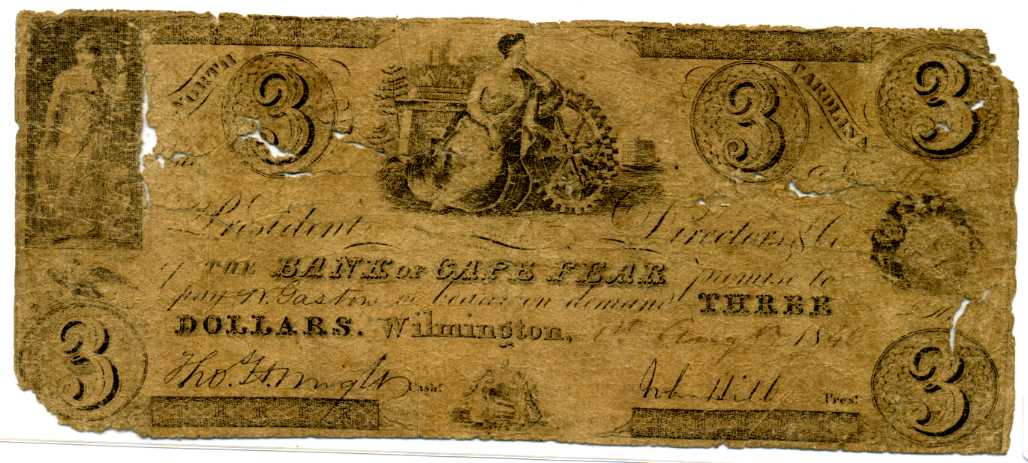 NORTH CAROLINA
3 3 3
President, Directors & Co
of THE BANK OF CAPE FEAR promise to
pay W. Gaston or bearer on demand THREE
DOLLARS. Wilmington, 1st Aug 184
3 3
Tho. H. Wright Cashr John Hill Prest